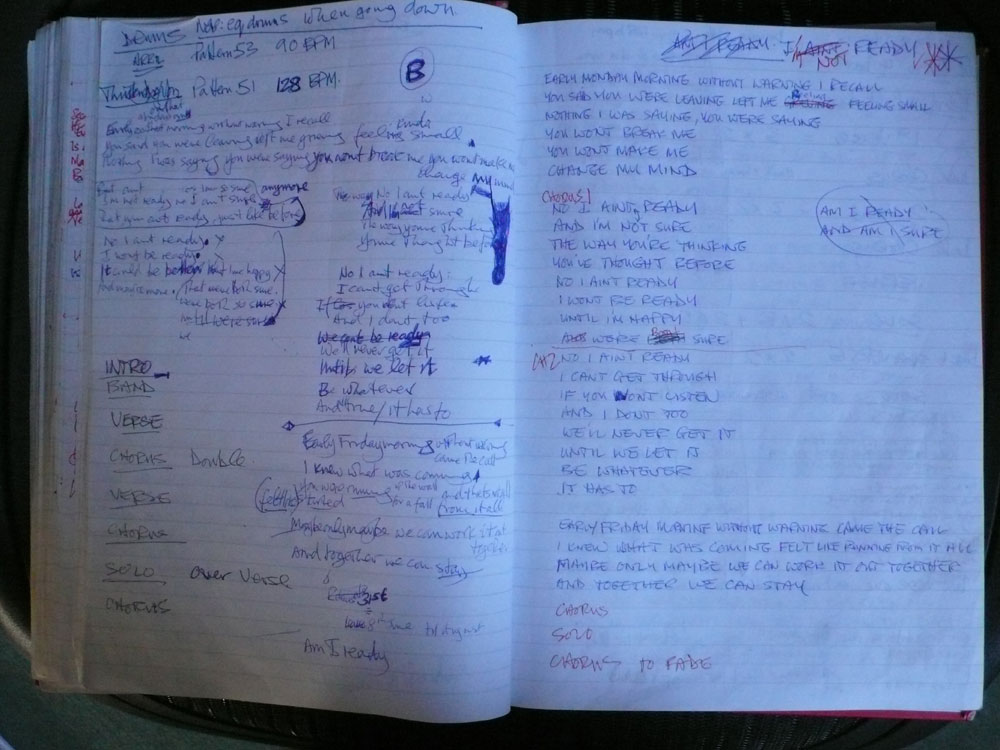 DRUMS Note: eq drums when going down.
AREZ Pattern 53 90 BPM
Pattern 51 128 BPM.
B
Early morning without warning I recall
You said you were leaving left me feeling kinda small
Nothing I was saying you were saying you wont break me you wont make me
change my mind
anymore
I'm not ready no I aint sure
ready, just like before
No I aint ready
I wont be ready
It could be better that im happy
That were both sure
were both so sure
we
No I aint ready
sure
The way youre thinking
Youve thought before
No I aint ready
I cant get through
If you wont listen
And I dont too
We cant be ready
We'll never get it
Until we let it
Be whatever
And true / it has to
INTRO
BAND
VERSE
CHORUS Double
VERSE
CHORUS
SOLO over Verse
CHORUS
Early Friday morning without warning
came the call
I knew what was coming
felt like
started for a fall from it all
Maybe only maybe we can work it out
together
And together we can stay
Am I ready
AM I READY I AINT READY
NOT
EARLY MONDAY MORNING WITHOUT WARNING I RECALL
YOU SAID YOU WERE LEAVING LEFT ME FEELING SMALL
NOTHING I WAS SAYING, YOU WERE SAYING
YOU WONT BREAK ME
YOU WONT MAKE ME
CHANGE MY MIND
CHORUS 1
NO I AINT READY
AND I'M NOT SURE
THE WAY YOU'RE THINKING
YOU'VE THOUGHT BEFORE
NO I AINT READY
I WONT BE READY
UNTIL I'M HAPPY
AND WERE BOTH SURE
AM I READY
AND AM I SURE
CH2 NO I AINT READY
I CANT GET THROUGH
IF YOU WONT LISTEN
AND I DONT TOO
WE'LL NEVER GET IT
UNTIL WE LET IT
BE WHATEVER
IT HAS TO
EARLY FRIDAY MORNING WITHOUT WARNING CAME THE CALL
I KNEW WHAT WAS COMING FELT LIKE RUNNING FROM IT ALL
MAYBE ONLY MAYBE WE CAN WORK IT OUT TOGETHER
AND TOGETHER WE CAN STAY
CHORUS
SOLO
CHORUS TO FADE